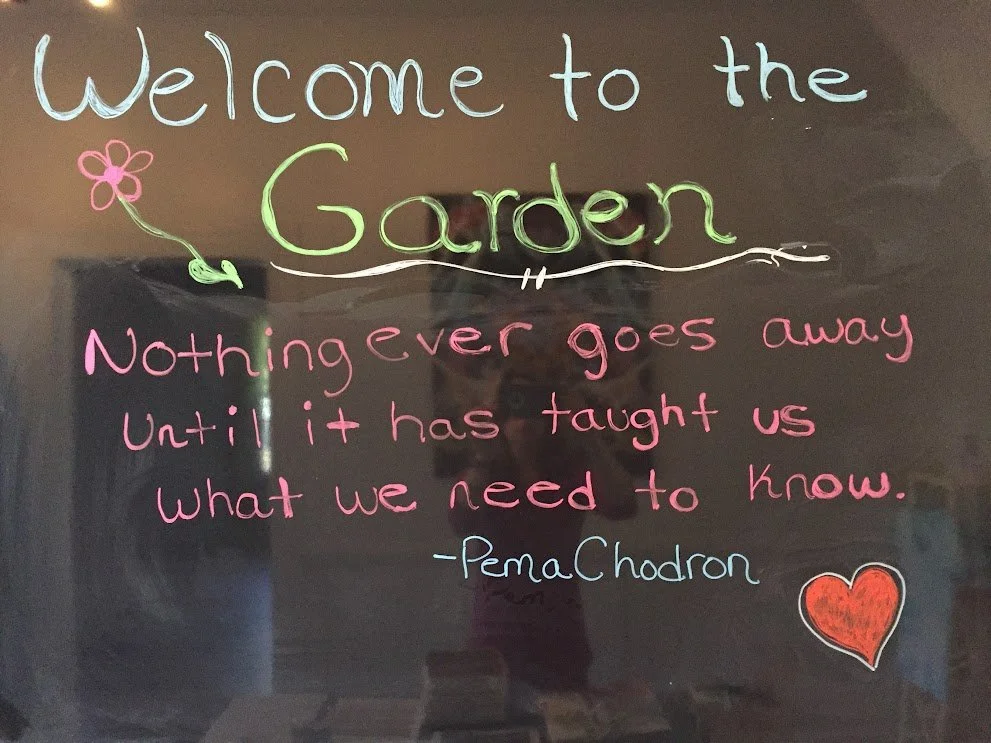 Welcome to the
Garden
Nothing ever goes away
until it has taught us
what we need to know.
-Pema Chodron